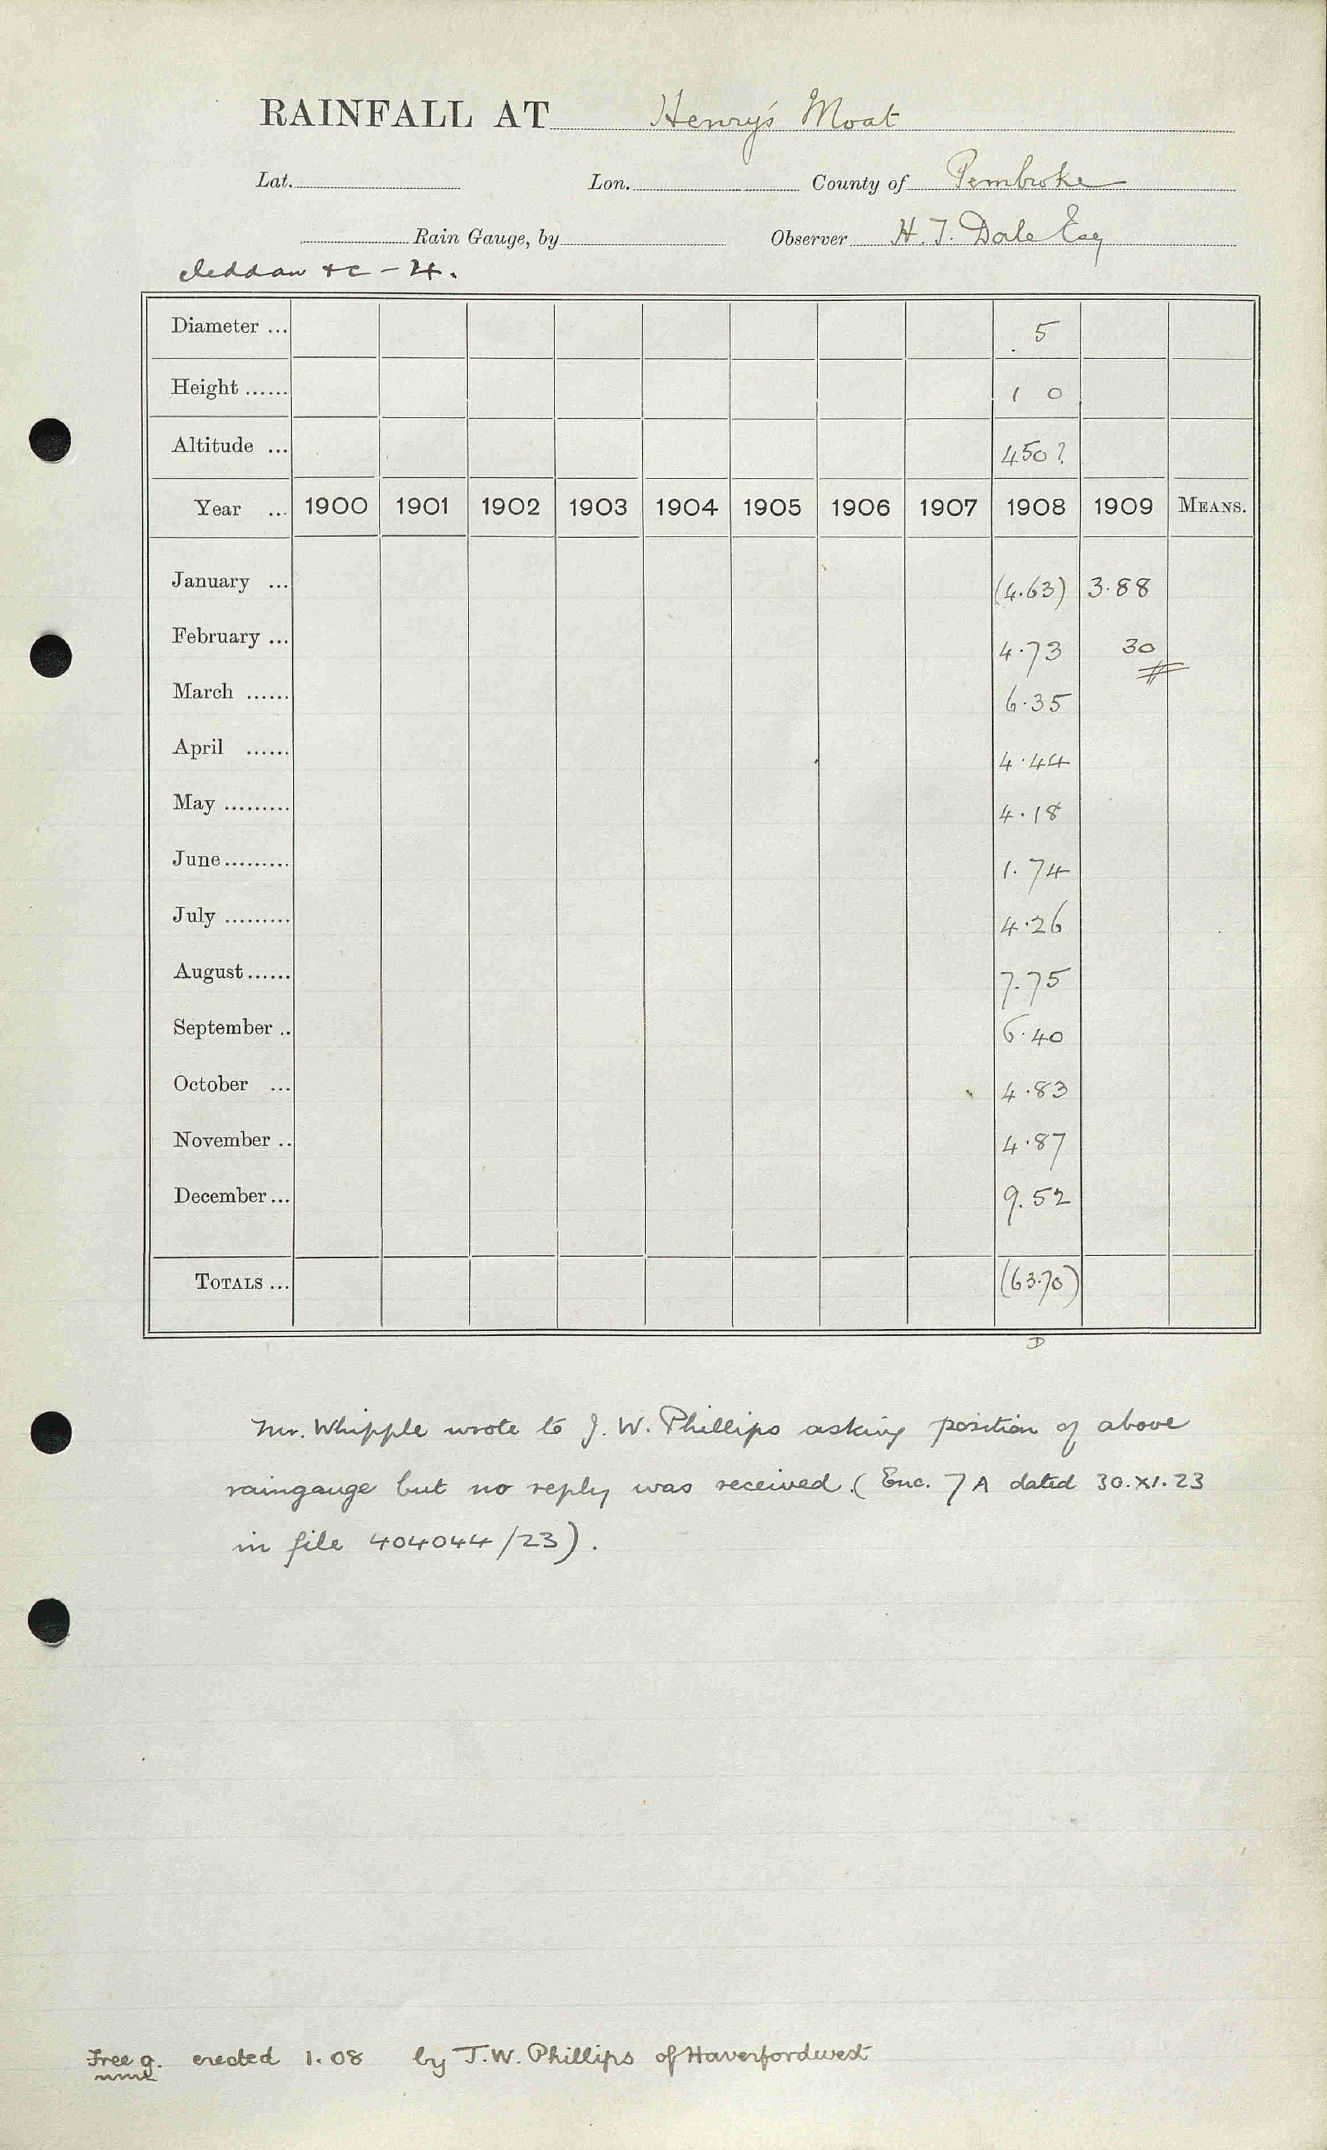 RAINFALL AT Henry's Moat
Lat. Lon. County of Pembroke
Rain Gauge, by Observer H. T. Dale Esq
Cleddau &c - 24.
Diameter ... 5
Height ...... 1 0
Altitude ... 450?
Year ... 1900 1901 1902 1903 1904 1905 1906 1907 1908 1909 MEANS.
January ... (4.63) 3.88
February ... 4.73 30
March ...... 6.35
April ...... 4.44
May ......... 4.18
June ......... 1.74
July ......... 4.26
August ...... 7.75
September .. 6.40
October ... 4.83
November .. 4.87
December ... 9.52
TOTALS ... (63.70)
D
Mr. Whipple wrote to J. W. Phillips asking position of above
raingauge but no reply was received. (Enc. 7A dated 30.XI.23
in file 404044/23).
Free g. erected 1.08 by J.W. Phillips of Haverfordwest